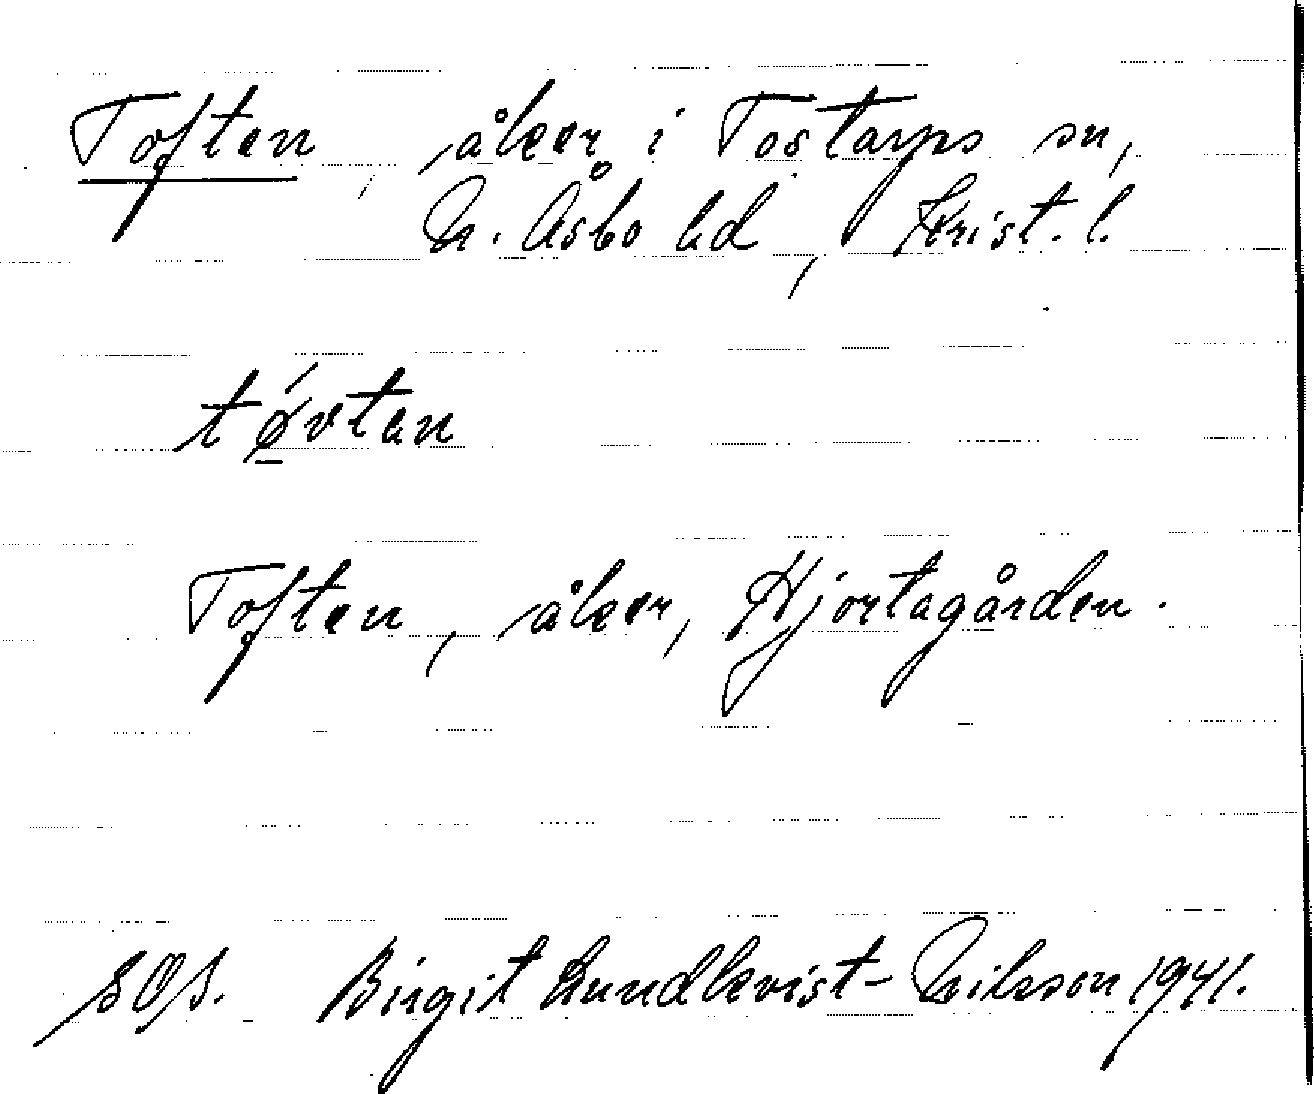 Toften, åker i Tostarps sn,
N. Åsbo hd, Krist. l.
tǿ̲vtan
Toften, åker, Hjortagården.
SOS. Birgit Lundkvist-Nilsson 1941.